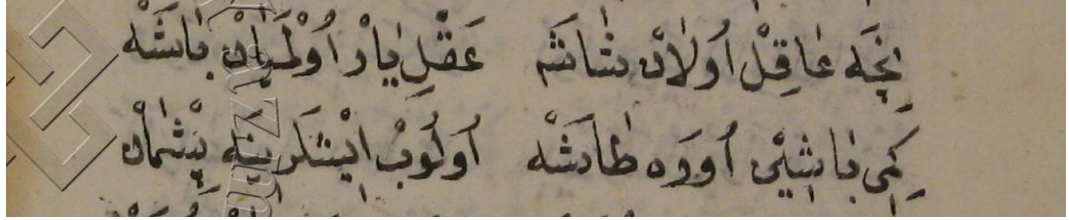 نِجَه عَاقِلْ اُولَانْ شَاشَه عَقْلِ يَارْ اُوْلْمَيَانْ بَاشَه
كِمِى بَاشِينِى اُورَه طَاشَه اُولُوبْ اِيشْلَرِينَه پِشْمَانْ